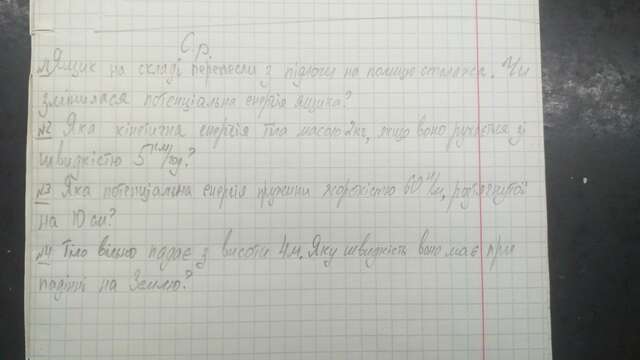 С.р.
№1 Ящик на складі перенесли з підлоги на полицю стелажа. Чи
змінилася потенціальна енергія ящика?
№2 Яка кінетична енергія тіла масою 2кг, якщо воно рухається зі
швидкістю 5 км/год?
№3 Яка потенціальна енергія пружини жорсткістю 60 Н/м, розтягнутої
на 10 см?
№4 Тіло вільно падає з висоти 4м. Яку швидкість воно має при
падінні на Землю?